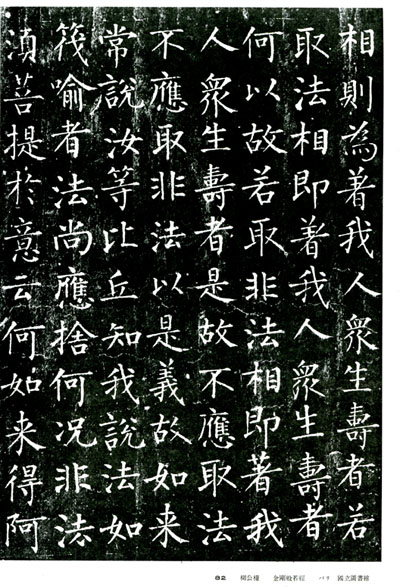 相則為著我人衆生壽者若
取法相即著我人衆生壽者
何以故若取非法相即著我
人衆生壽者是故不應取法
不應取非法以是義故如来
常說汝等比丘知我說法如
筏喻者法尚應捨何况非法
湏菩提於意云何如来得阿
柳公權 金剛般若經 パリ 國立圖書館